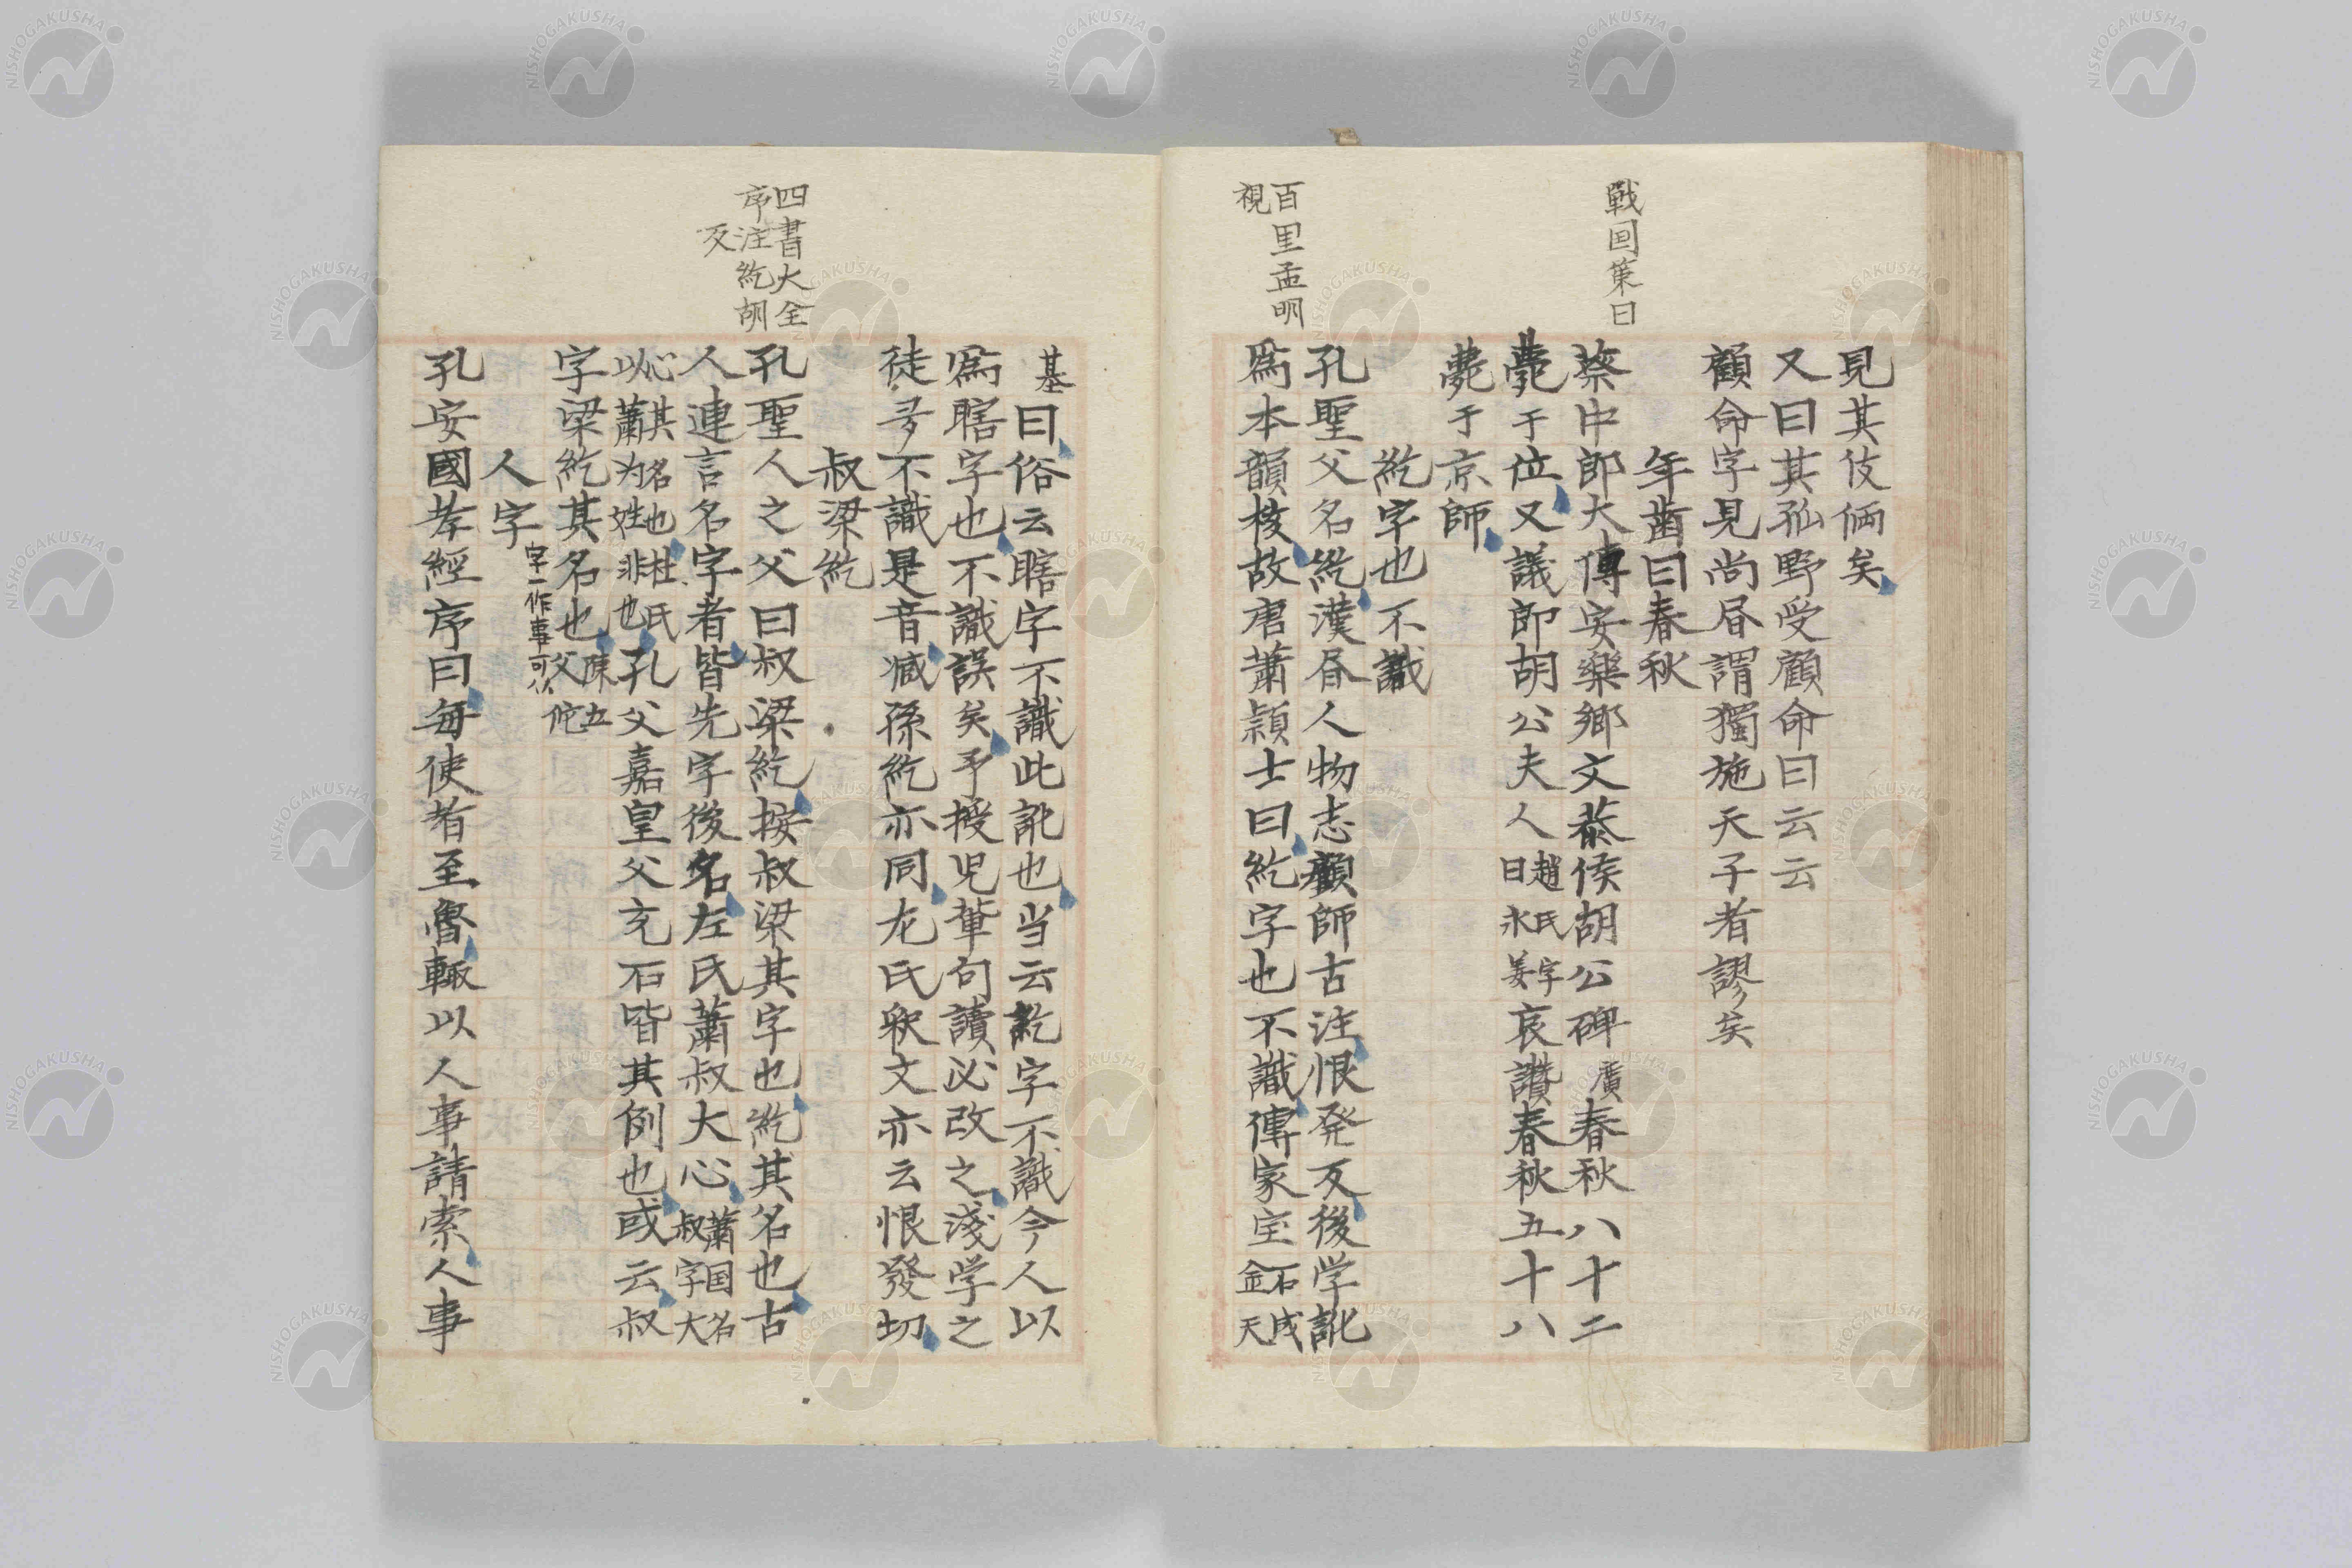 戰国策曰
百里孟明
視
見其伎倆矣
又曰其孤野受顧命曰云云
顧命字見尚昏謂獨施天子者謬矣
年菑曰春秋
蔡中郎大傳安樂鄉文恭侯胡公碑廣春秋八十二
薨于位又議郎胡公夫人趙氏字
曰永姜哀讚春秋五十八
薨于京師
紇字也不識
孔聖父名紇漢昏人物志顏師古注恨発反後学訛
為本韻核故唐蕭頴士曰紇字也不識傳家宝石成
金天
四書大全
序注紇胡
反
基曰俗云瞎字不識此訛也当云紇字不識今人以
為瞎字也不識誤矣予授児輩句讀必改之淺学之
徒多不識是音臧孫紇亦同左氏釈文亦云恨發切
叔梁紇
孔聖人之父曰叔梁紇按叔梁其字也紇其名也古
人連言名字者皆先字後名左氏蕭叔大心蕭国名
叔字大
心其名也杜氏
以蕭为姓非也孔父嘉皇父充石皆其例也或云叔
字梁紇其名也陳五
父佗
人字字一作事可从
孔安國孝經序曰每使者至魯輙以人事請索人事